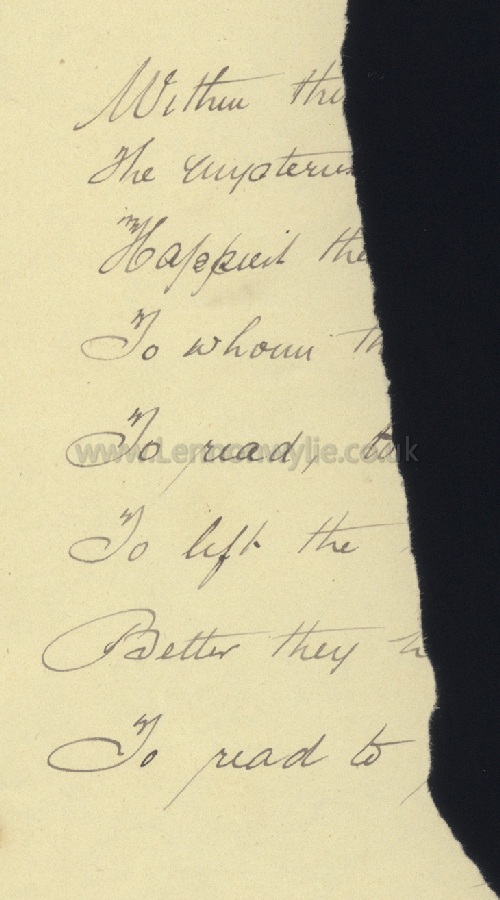 Within thi
The mysteries
Happiest the
To whom th
To read, to
www.Lennonwylie.co.uk
To lift the
Better they h
To read to